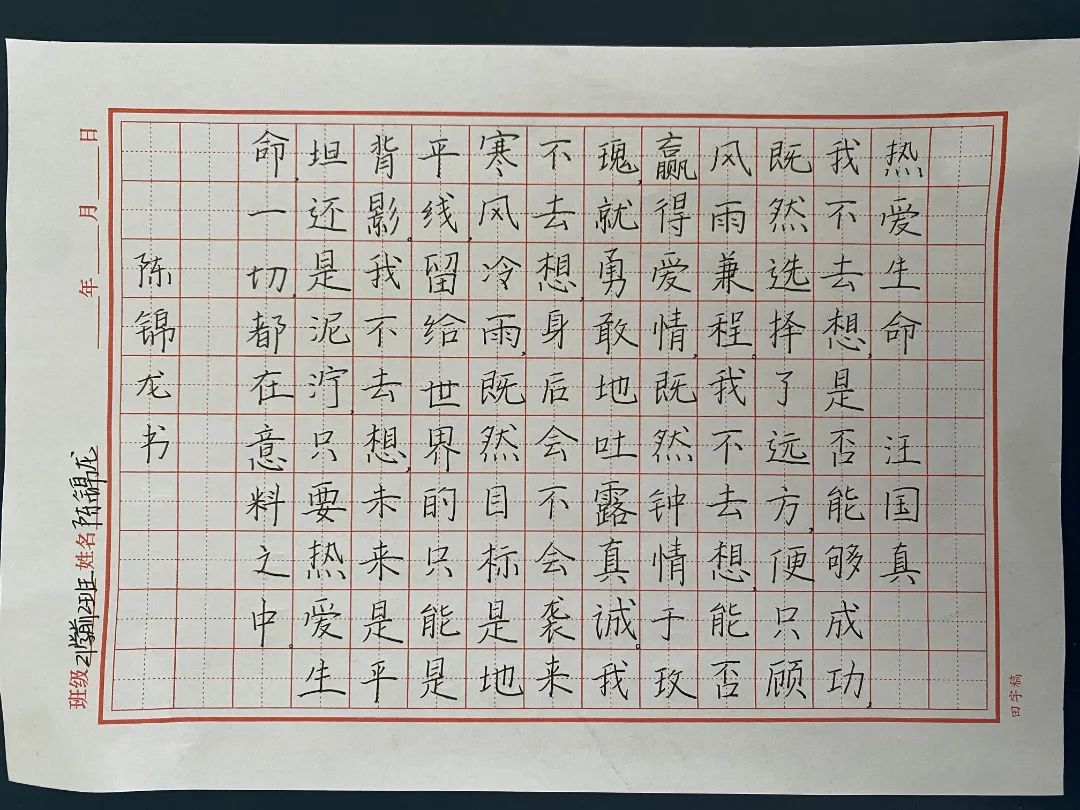 热爱生命 汪国真
我不去想,是否能够成功,
既然选择了远方,便只顾
风雨兼程。我不去想,能否
赢得爱情,既然钟情于玫
瑰,就勇敢地吐露真诚。我
不去想,身后会不会袭来
寒风冷雨,既然目标是地
平线,留给世界的只能是
背影。我不去想,未来是平
坦还是泥泞,只要热爱生
命,一切,都在意料之中。
陈锦龙书
班级 21学前2班 姓名 陈锦龙 年 月 日
田字稿